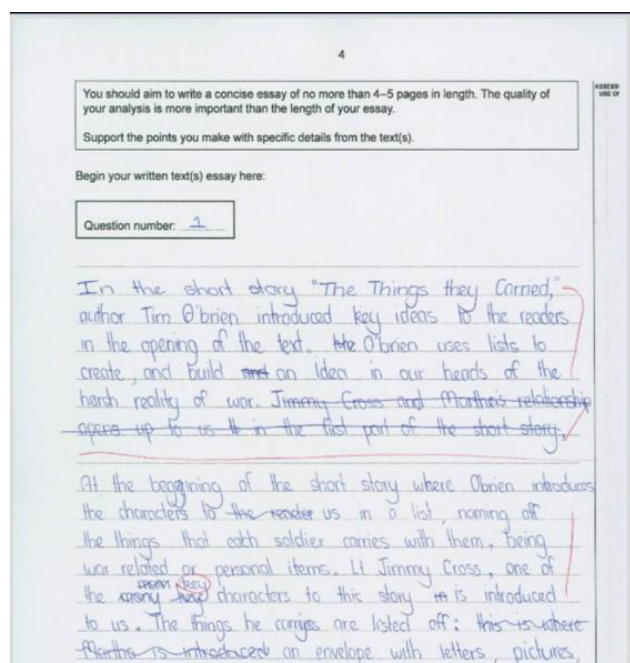 4
You should aim to write a concise essay of no more than 4–5 pages in length. The quality of
your analysis is more important than the length of your essay.
Support the points you make with specific details from the text(s).
ASSESS
USE OF
Begin your written text(s) essay here:
Question number: 1
In the short story "The Things they Carried,"
author Tim O'brien introduced key ideas to the readers
in the opening of the text. the O'brien uses lists to
create, and build and an Idea in our heads of the
harsh reality of war. Jimmy Cross and Martha's relationship
opens up to us in the first part of the short story.
At the beggining of the short story where Obrien introduces
the characters to the reader us in a list, naming off
the things that each soldier carries with them, being
war related or personal items. Lt Jimmy Cross, one of
key
the characters to this story is introduced
to us. The things he carries are listed off: this is where
Martha is introduced an envelope with letters, pictures,